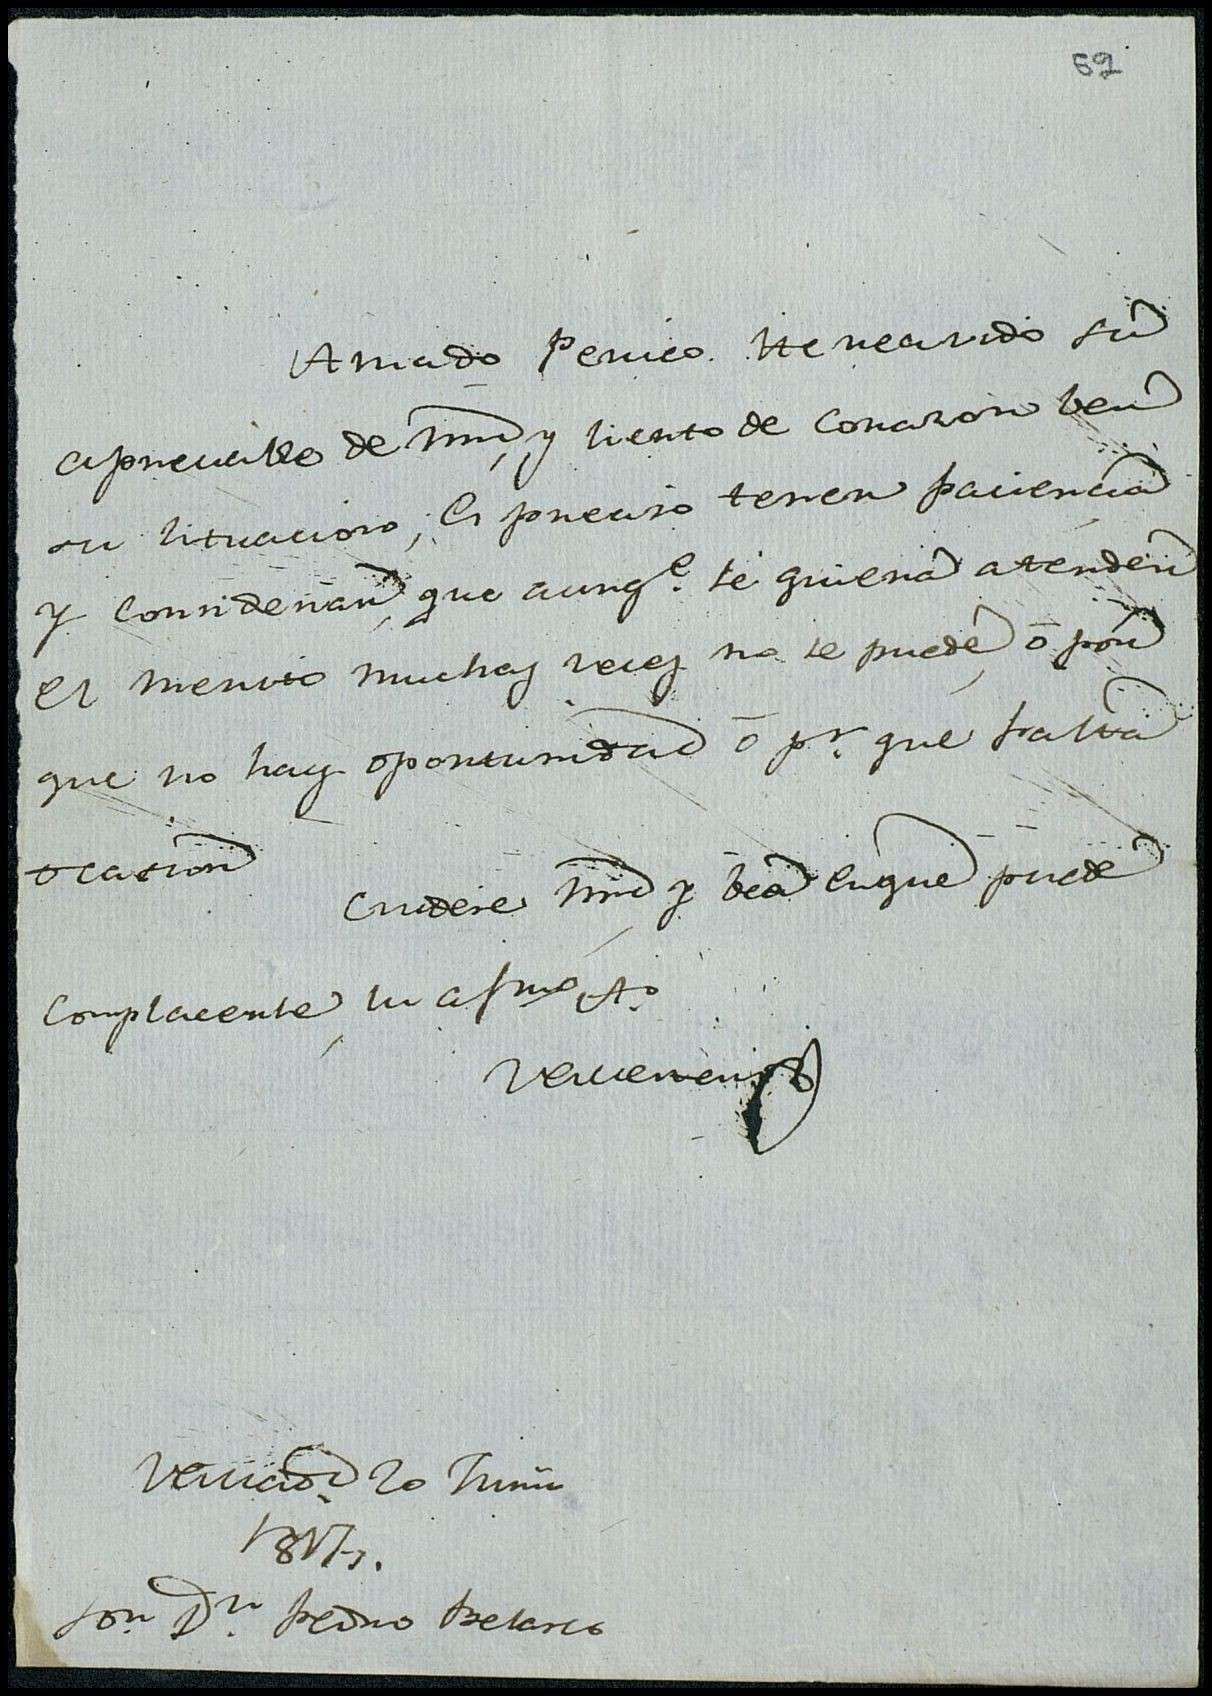 69
Amado Perico. He recivido su
apreciable de Vmd, y siento de corazon ver
su situacion, es preciso tener paciencia
y considerar, que aunq.e se quiera atender
el merito muchas veces no se puede, ó por
que no hay oportunidad ó p.r que falta
ocasion
Cuidese Vmd y vea en que puede
complacerle, su afmo A.o
20 Junio
1817,.
Sor. Dn. Pedro Velarde